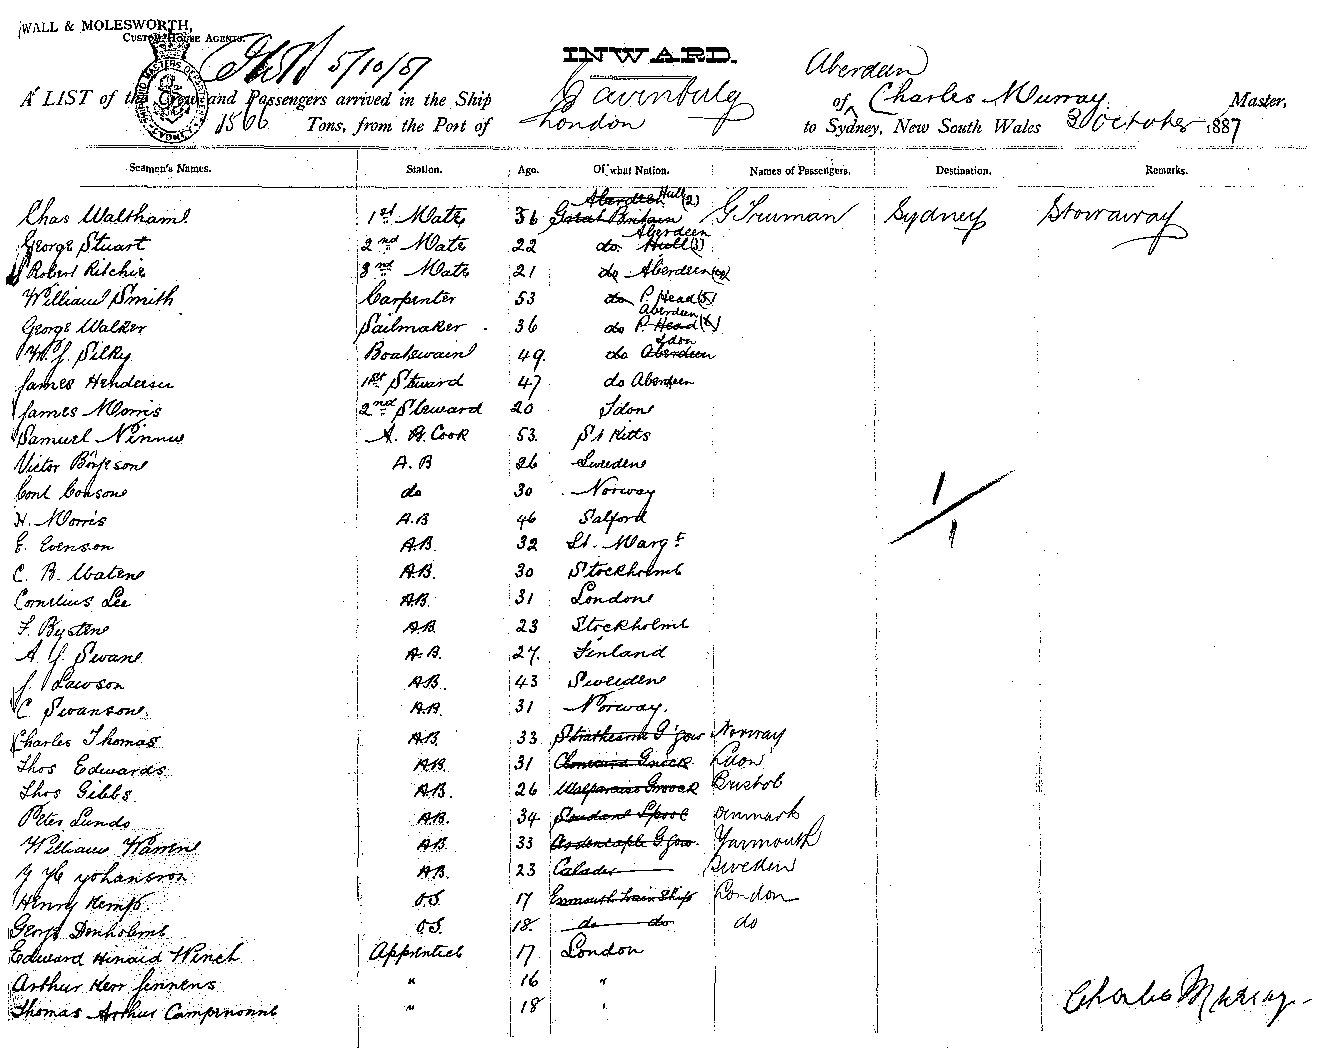 WALL & MOLESWORTH,
CUSTOM HOUSE AGENTS.
5/10/87
INWARD.
A LIST of the Crew and Passengers arrived in the Ship Cairnbulg of Aberdeen Charles Murray Master,
1566 Tons, from the Port of London to Sydney, New South Wales 3 October 1887
Seamen's Names. Station. Age. Of what Nation. Names of Passengers. Destination. Remarks.
Aberdeen Hull (2)
Chas Waltham 1st Mate 36 Great Britain G Truman Sydney Stowaway
Aberdeen
George Stuart 2nd Mate 22 do Hull (3)
Robert Ritchie 3rd Mate 21 do Aberdeen
William Smith Carpenter 53 do P. Head (5)
Aberdeen
George Walker Sailmaker 36 do P. Head (6)
Ldon
W. J. Silky Boatswain 49 do Aberdeen
James Henderson 1st Steward 47 do Aberdeen
James Morris 2nd Steward 20 Ldon
Samuel A. B. Cook 53 St Kitts
Victor Börjeson A.B 26 Sweden
do 30 Norway
H. Morris A.B 46 Salford
1/1
E. Evenson A.B. 32 St. Margt
C. B. A.B. 30 Stockholm
Cornelius Lee A.B. 31 London
F. Bysten A.B. 23 Stockholm
A. J. Swan A.B. 27 Finland
J. Lawson A.B. 43 Sweden
C. Swanson A.B. 31 Norway.
Charles Thomas A.B. 33 Strathearn G'gow Norway
Thos Edwards A.B. 31 Ldon
Thos Gibbs A.B. 26 Valparaiso Bristol
Peter Lunds A.B. 34 Denmark
William Warren A.B. 33 Ardencaple G'gow. Yarmouth
Johanson A.B. 23 Sweden
Henry Kemp O.S. 17 Exmouth Train Ship London
George Denholm O.S. 18. do do do
Edward Winch Apprentice 17 London
Arthur Kerr Jennens " 16 "
Thomas Arthur " 18 "
Charles Murray